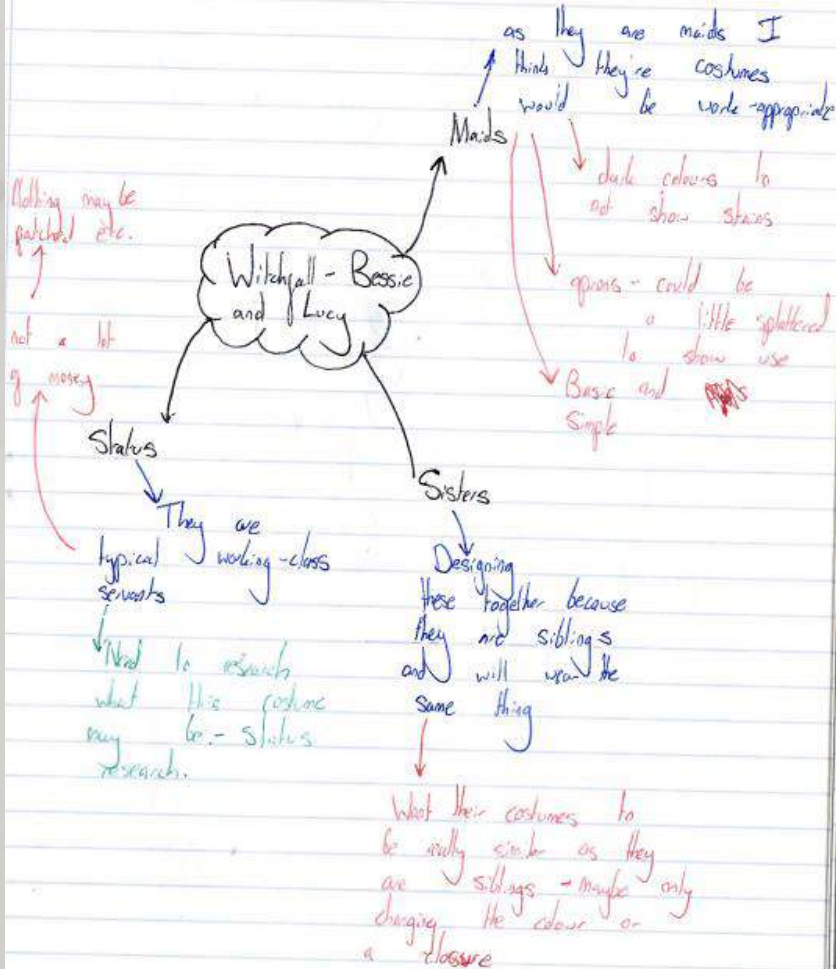 Witchfall - Bessie
and Lucy
Maids
as they are maids I
think they're costumes
would be work-appropriate
dark colours to
not show stains
aprons - could be
a little splattered
to show use
Basic and
Simple
Status
They are
typical working-class
servants
not a lot
of money
Clothing may be
patched etc.
Need to research
what this costume
may be - status
research.
Sisters
Designing
these together because
they are siblings
and will wear the
same thing
Want their costumes to
be really similar as they
are siblings - maybe only
changing the colour or
a closure